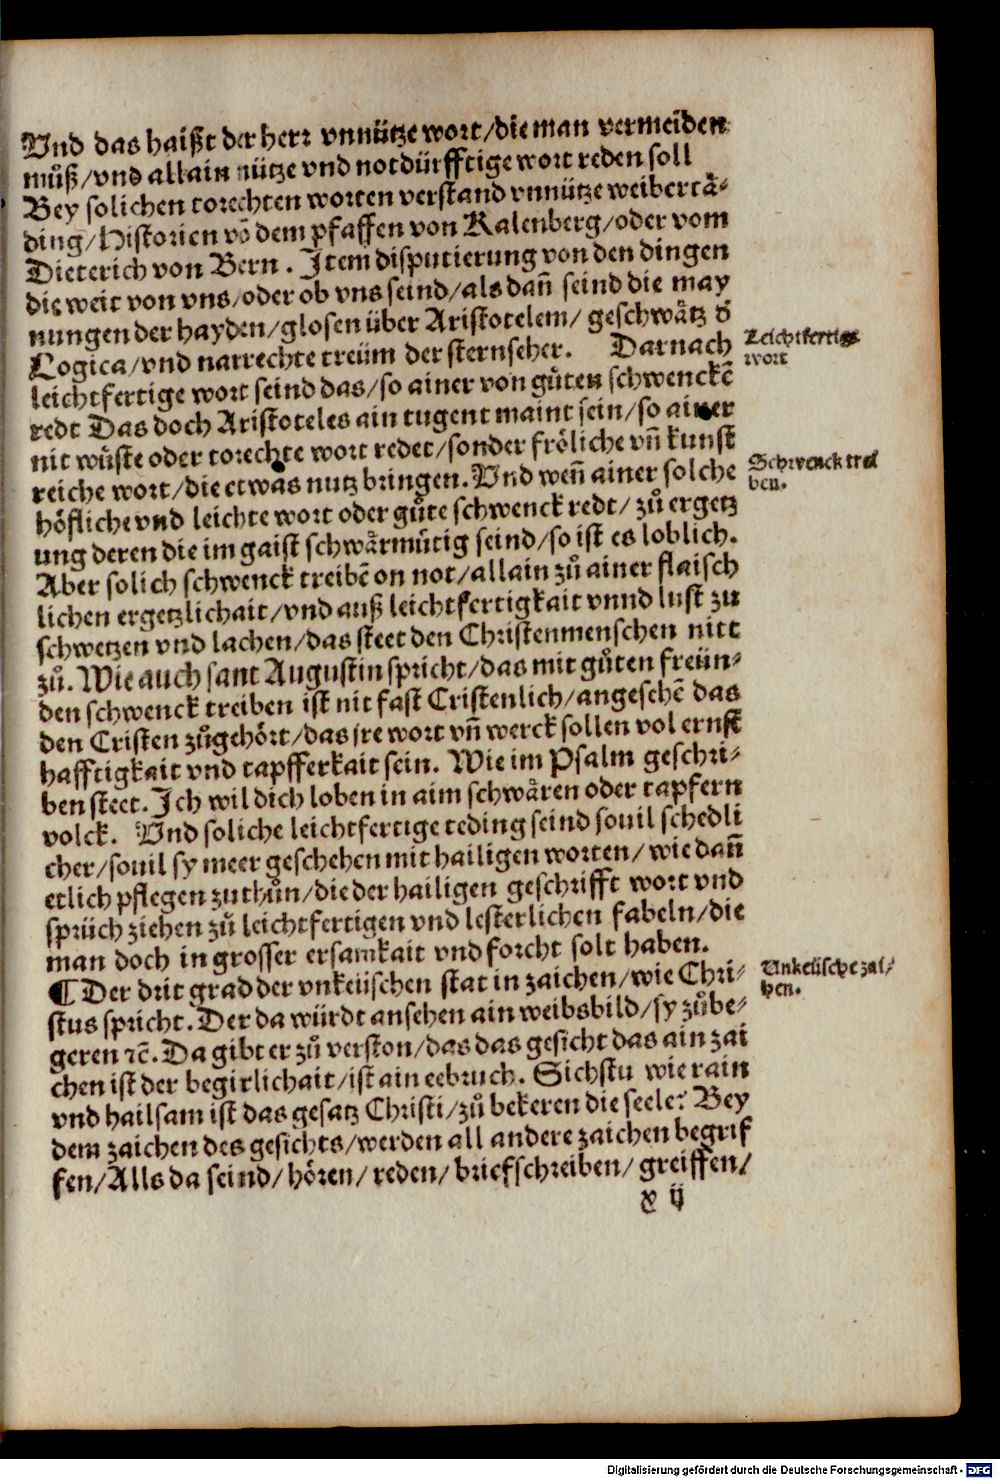 Vnd das haißt der herꝛ vnnütze woꝛt/die man vermeiden
muͦß/vnd allain nütze vnd notdürfftige woꝛt reden soll
Bey solichen toꝛechten woꝛten verstand vnnütze weibertaͤ-
ding/Histoꝛien võ dem pfaffen von Kalenberg/oder vom
Dieterich von Bern. Item disputierung von den dingen
die weit von vns/oder ob vns seind/als dañ seind die may
nungen der hayden/glosen über Aristotelem/ geschwaͤtz d̕
Logica/vnd narrechte treüm der sternseher. Darnach
leichtfertige woꝛt seind das/so ainer von guͦten schwenckẽ
redt Das doch Aristoteles ain tugent maint sein/so ainer
nit wuͤste oder toꝛechte woꝛt redet/sonder froͤliche vñ kunst
reiche woꝛt/die etwas nutz bringen. Vnd weñ ainer solche
hoͤfliche vnd leichte woꝛt oder guͦte schwenck redt/ zuͦ ergetz
ung deren die im gaist schwaͤrmuͤtig seind/so ist es loblich.
Aber solich schwenck treibẽ on not/allain zuͦ ainer flaisch
lichen ergetzlichait/vnd auß leichtfertigkait vnnd lust zu
schwetzen vnd lachen/das steet den Christenmenschen nitt
zuͦ. Wie auch sant Augustin spricht/das mit guͦten freün-
den schwenck treiben ist nit fast Cristenlich/angesehẽ das
den Cristen zuͦgehoͤꝛt/das jre woꝛt vñ werck sollen vol ernst
hafftigkait vnd tapfferkait sein. Wie im Psalm geschꝛi-
ben steet. Ich wil dich loben in aim schwaͤren oder tapfern
volck. Vnd soliche leichtfertige teding seind souil schedli
cher/souil sy meer geschehen mit hailigen woꝛten/ wie dañ
etlich pflegen zuthuͦn/die der hailigen geschꝛifft woꝛt vnd
spꝛüch ziehen zuͦ leichtfertigen vnd lesterlichen fabeln/die
man doch in grosser ersamkait vnd foꝛcht solt haben.
¶ Der dꝛit grad der vnkeüschen stat in zaichen/wie Chꝛi-
stus spꝛicht. Der da würdt ansehen ain weibsbild/sy zuͦbe-
geren ꝛc̃. Da gibt er zuͦ verston/das das gesicht das ain zai
chen ist der begirlichait/ist ain eebꝛuch. Sichstu wie rain
vnd hailsam ist das gesatz Christi/zuͦ bekeren die seele? Bey
dem zaichen des gesichts/werden all andere zaichen begrif
fen/Alls da seind/hoͤꝛen/ reden/ bꝛiefschꝛeiben/ greiffen/
x ij
Leichtfertige
woꝛt
Schwenck trei
ben.
Vnkeüsche zai/
hen.
Digitalisierung gefördert durch die Deutsche Forschungsgemeinschaft - DFG